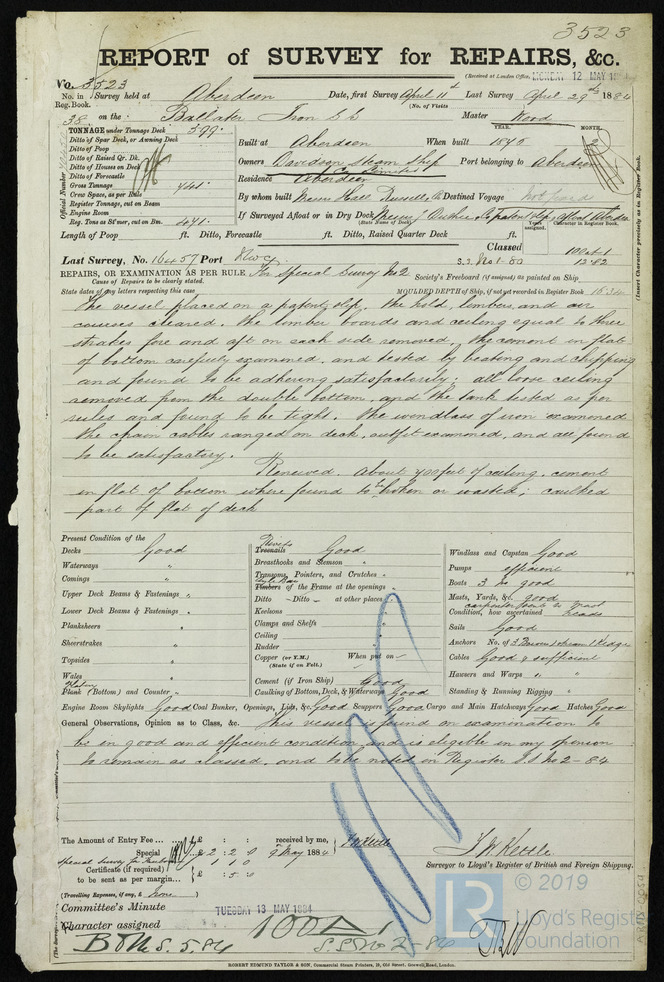 3523
REPORT of SURVEY for REPAIRS, &c.
(Received at London Office, MONDAY 12 MAY 1884
No. 3523
No. in Survey held at Aberdeen Date, first Survey April 11th Last Survey April 29th 1884
Reg. Book. (No. of Visits )
38 on the Ballater Iron S.S. Master Wood
TONNAGE under Tonnage Deck 599
Ditto of Spar Deck, or Awning Deck
Ditto of Poop
Ditto of Raised Qr. Dk.
Ditto of Houses on Deck
Ditto of Forecastle
Gross Tonnage 741
Crew Space, as per Rule
Register Tonnage, out on Beam
Engine Room
Reg. Tons as St'mr, cut on Bm. 471
Official Number
Built at Aberdeen When built YEAR. MONTH.
Owners Davidson Steam Ship Co Limited Port belonging to Aberdeen
Residence Aberdeen
By whom built Messrs Hall Russell & Co Destined Voyage
If Surveyed Afloat or in Dry Dock
Length of Poop ft. Ditto, Forecastle ft. Ditto, Raised Quarter Deck ft.
Classed 100A1
12.82
Last Survey, No. 16457 Port Nwc S.S. No 1-80
REPAIRS, OR EXAMINATION AS PER RULE For Special Survey No 2 Society's Freeboard (if assigned) as painted on Ship
Cause of Repairs to be clearly stated.
State dates of any letters respecting this case MOULDED DEPTH of Ship, (if not yet recorded in Register Book
(Insert Character precisely as in Register Book.
The vessel placed on a patent slip. The hold, limbers and air
courses cleared. The limber boards and ceiling equal to three
strakes fore and aft on each side removed. The cement in flat
of bottom carefully examined, and tested by beating and chipping
and found to be adhering satisfactorily; all loose ceiling
removed from the double bottom, and the tank tested as per
rules and found to be tight. The windlass of iron examined
the chain cables ranged on deck, outfit examined, and all found
to be satisfactory.
Renewed. About 400 feet of ceiling. cement
in flat of bottom where found to be broken or wasted; caulked
part of flat of deck
Present Condition of the
Decks Good
Waterways "
Comings "
Upper Deck Beams & Fastenings "
Lower Deck Beams & Fastenings "
Planksheers "
Sheerstrakes "
Topsides "
Wales "
Plank (Bottom) and Counter "
Rivets
Treenails Good
Breasthooks and Stemson "
Transoms, Pointers, and Crutches "
Timbers of the Frame at the openings
Ditto Ditto at other places
Keelsons
Clamps and Shelfs
Ceiling
Rudder
Copper (or Y.M.) When put on
(State if on Felt.)
Cement (if Iron Ship) Good
Caulking of Bottom, Deck, & Waterways Good
Windlass and Capstan Good
Pumps efficient
Boats 3 in good
Masts, Yards, &c. good
Condition, how ascertained
Sails Good
Anchors No. of 3 Bowers 1 Stream 1 Kedge
Cables Good & sufficient
Hawsers and Warps " "
Standing & Running Rigging "
Engine Room Skylights Good Coal Bunker, Openings, Lids, &c. Good Scuppers Good Cargo and Main Hatchways Good Hatches Good
General Observations, Opinion as to Class, &c. This vessel is found on examination to
be in good and efficient condition and is eligible in my opinion
to remain as classed, and to be noted in Register S.S. No 2-84
The Amount of Entry Fee ... £ : : received by me,
Special £ 2 : 2 : 0 9 May 1884
1 1 0
Certificate (if required) £ : 5 : 0
to be sent as per margin...
(Travelling Expenses, if any, £ None )
J W Kettle
Surveyor to Lloyd's Register of British and Foreign Shipping.
Committee's Minute TUESDAY 13 MAY 1884
Character assigned 100A1
S.S. No 2-84
© 2019
LR
Lloyd's Register
Foundation
ROBERT EDMUND TAYLOR & SON, Commercial Steam Printers, 19, Old Street, Goswell Road, London.